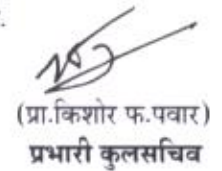 (प्रा.किशोर फ.पवार)
प्रभारी कुलसचिव